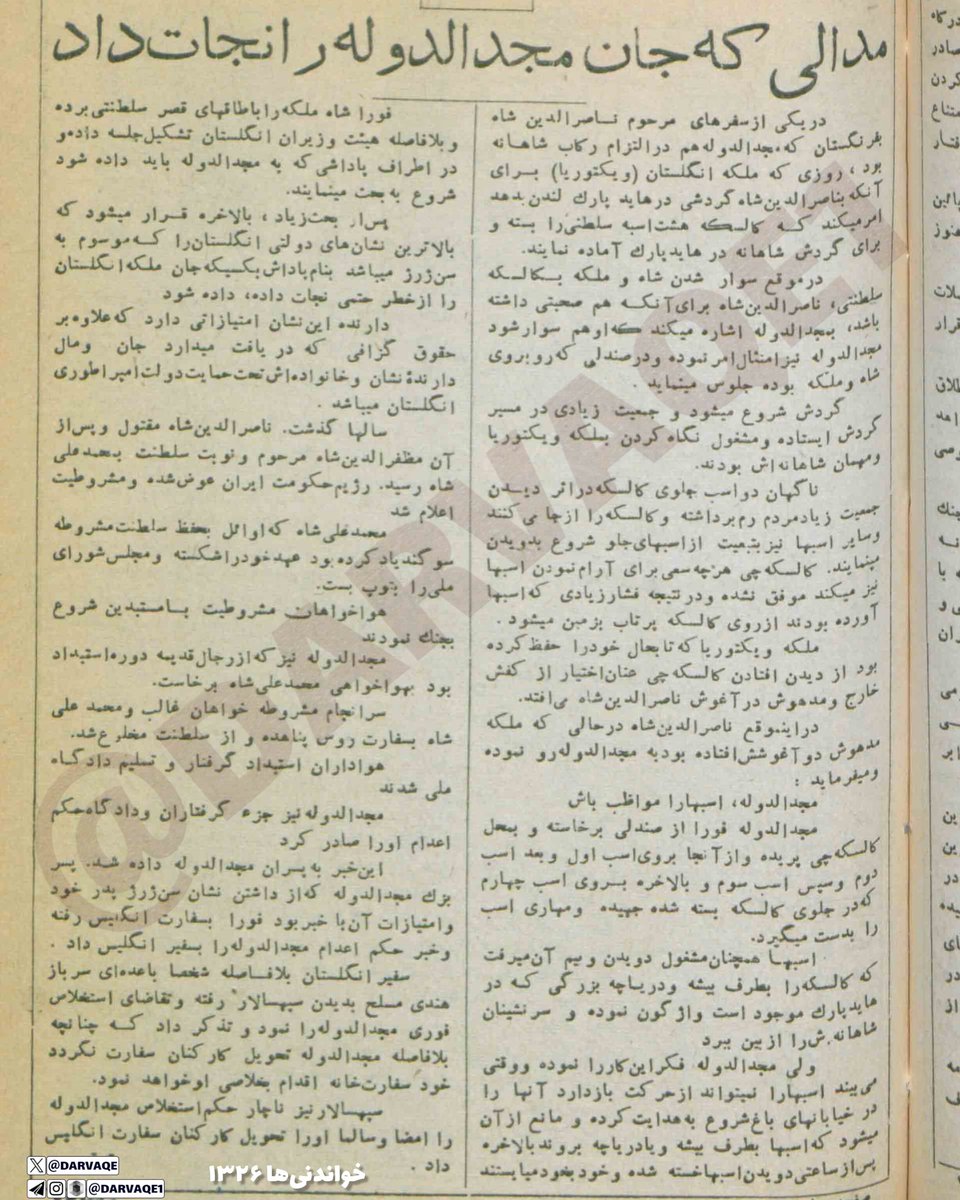 مدالی که جان مجدالدوله را نجات داد
در یکی از سفرهای مرحوم ناصرالدین شاه
بفرنگستان که مجدالدوله هم در التزام رکاب شاهانه
بود، روزی که ملکه انگلستان (ویکتوریا) برای
آنکه بناصرالدین شاه گردشی در هاید پارك لندن بدهد
امر میکند که کالسکه هشت اسبه سلطنتی را بسته و
برای گردش شاهانه در هاید پارك آماده نمایند.
در موقع سوار شدن شاه و ملکه بکالسکه
سلطنتی، ناصرالدین شاه برای آنکه هم صحبتی داشته
باشد، بمجدالدوله اشاره میکند که او هم سوار شود
مجدالدوله نیز امتثال امر نموده و در صندلی که روبروی
شاه و ملکه بوده جلوس مینماید.
گردش شروع میشود و جمعیت زیادی در مسیر
گردش ایستاده و مشغول نگاه کردن بملکه ویکتوریا
و مهمان شاهانه اش بودند.
ناگهان دو اسب جلوی کالسکه در اثر دیدن
جمعیت زیاد مردم رم برداشته و کالسکه را از جا می کنند
و سایر اسبها نیز بتبعیت از اسبهای جلو شروع بدویدن
مینمایند. کالسکه چی هر چه سعی برای آرام نمودن اسبها
نیز میکند موفق نشده و در نتیجه فشار زیادی که اسبها
آورده بودند از روی کالسکه پرتاب بزمین میشود.
ملکه ویکتوریا که تا بحال خود را حفظ کرده
بود از دیدن افتادن کالسکه چی عنان اختیار از کفش
خارج و مدهوش در آغوش ناصرالدین شاه می افتد.
در اینموقع ناصرالدین شاه در حالی که ملکه
مدهوش دو آغوشش افتاده بود به مجدالدوله رو نموده
و میفرماید :
مجدالدوله، اسبها را مواظب باش
مجدالدوله فورا از صندلی برخاسته و بمحل
کالسکه چی پریده و از آنجا بروی اسب اول و بعد اسب
دوم و سپس اسب سوم و بالاخره بسروی اسب چهارم
که در جلوی کالسکه بسته شده جهیده و مهاری اسب
را بدست میگیرد.
اسبها همچنان مشغول دویدن و بیم آن میرفت
که کالسکه را بطرف بیشه و دریاچه بزرگی که در
هاید پارك موجود است واژگون نموده و سرنشینان
شاهانه ش را از بین ببرد
ولی مجدالدوله فکر این کار را نموده ووقتی
می بیند اسبها را نمیتواند از حرکت بازدارد آنها را
در خیابانهای باغ شروع به هدایت کرده و مانع از آن
میشود که اسبها بطرف بیشه و یا دریاچه بروند بالاخره
پس از ساعتی دویدن اسبها خسته شده و خود بخود میایستند
فورا شاه ملکه را باطاقهای قصر سلطنتی برده
و بلافاصله هیئت وزیران انگلستان تشکیل جلسه داده و
در اطراف پاداشی که به مجدالدوله باید داده شود
شروع به بحث مینمایند.
پس از بحث زیاد، بالاخره قرار میشود که
بالاترین نشان های دولتی انگلستان را که موسوم به
سن ژرژ میباشد بنام پاداش بکسیکه جان ملکه انگلستان
را از خطر حتمی نجات داده، داده شود
دارنده این نشان امتیازاتی دارد که علاوه بر
حقوق گزافی که دریافت میدارد جان و مال
دارندهٔ نشان و خانواده اش تحت حمایت دولت امپراطوری
انگلستان میباشد .
سالها گذشت. ناصرالدین شاه مقتول و پس از
آن مظفرالدین شاه مرحوم و نوبت سلطنت بمحمد علی
شاه رسید. رژیم حکومت ایران عوض شده و مشروطیت
اعلام شد
محمد علی شاه که اوائل بحفظ سلطنت مشروطه
سوگند یاد کرده بود عهد خود را شکسته و مجلس شورای
ملی را بتوپ بست.
هواخواهان مشروطیت با مستبدین شروع
بجنك نمودند
مجدالدوله نیز که از رجال قدیمه دوره استبداد
بود بهواخواهی محمد علی شاه برخاست.
سرانجام مشروطه خواهان غالب و محمد علی
شاه بسفارت روس پناهده و از سلطنت مخلوع شد.
هواداران استبداد گرفتار و تسلیم دادگاه
ملی شدند
مجدالدوله نیز جزء گرفتاران و دادگاه حکم
اعدام او را صادر کرد
این خبر به پسران مجدالدوله داده شد. پسر
بزك مجدالدوله که از داشتن نشان سن ژرژ پدر خود
و امتیازات آن با خبر بود فورا بسفارت انگلیس رفته
و خبر حکم اعدام مجدالدوله را بسفیر انگلیس داد .
سفیر انگلستان بلافاصله شخصا با عده ای سرباز
هندی مسلح بدیدن سپهسالار رفته و تقاضای استخلاص
فوری مجدالدوله را نمود و تذکر داد که چنانچه
بلافاصله مجدالدوله تحویل کارکنان سفارت نگردد
خود سفارتخانه اقدام بخلاصی او خواهد نمود.
سپهسالار نیز ناچار حکم استخلاص مجدالدوله
را امضا و سالما او را تحویل کارکنان سفارت انگلیس
داد .
@DARVAQE1
خواندنی‌ها ۱۳۲۶
@DARVAQE
@DARVAQE1